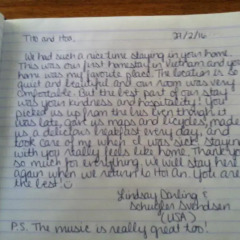 Tho and Hoa, 27/2/16
We had such a nice time staying in your home.
This was our first homestay in Vietnam and your
home was my favorite place. The location is so
quiet and beautiful and our room was very
comfortable. But the best part of our stay
was your kindness and hospitality! You
picked us up from the bus even though it
was late, gave us maps and bicycles, made
us a delicious breakfast every day, and
took care of me when I was sick! Staying
with you really feels like home. Thank you
so much for everything. We will stay here
again when we return to Hoi An. You are
the best!
Lindsay Darling &
Schuyler Svendsen
(USA)
P.S. The music is really great too!